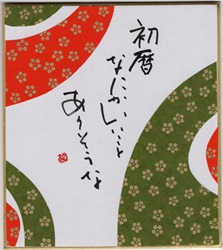 初暦
なにかしいいこと
ありそうな